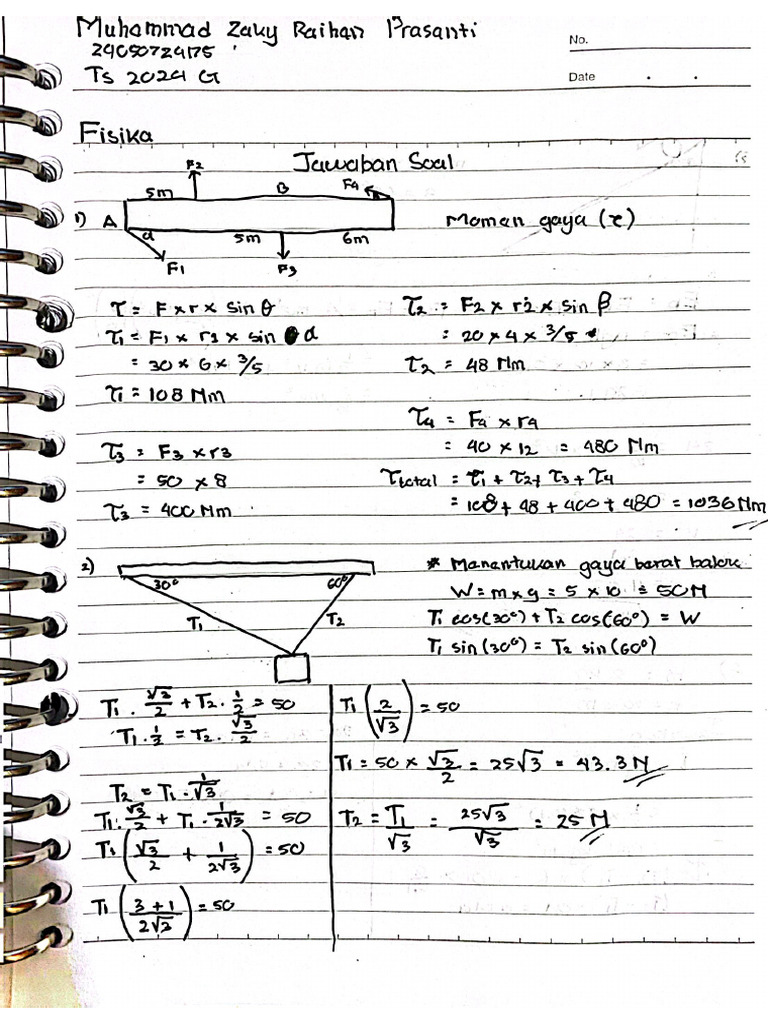 Muhammad Zaky Raihan Prasanti
24050724175
TS 2024 G
No.
Date
Fisika
Jawaban Soal
1) A
5m
F2
B
F4
α
5m
6m
F1
F3
Momen gaya (τ)
τ = F x r x sin θ
τ1 = F1 x r1 x sin α
= 30 x 6 x 3/5
τ1 = 108 Nm
τ3 = F3 x r3
= 50 x 8
τ3 = 400 Nm
τ2 = F2 x r2 x sin β
= 20 x 4 x 3/5
τ2 = 48 Nm
τ4 = F4 x r4
= 40 x 12 = 480 Nm
τtotal = τ1 + τ2 + τ3 + τ4
= 108 + 48 + 400 + 480 = 1036 Nm
2)
30°
60°
T1
T2
* Menentukan gaya berat balok
W = m x g = 5 x 10 = 50 N
T1 cos(30°) + T2 cos(60°) = W
T1 sin(30°) = T2 sin(60°)
T1 . √3/2 + T2 . 1/2 = 50
T1 . 1/2 = T2 . √3/2
T2 = T1 . 1/√3
T1 . √3/2 + T1 . 1/2√3 = 50
T1 (√3/2 + 1/2√3) = 50
T1 (3 + 1/2√3) = 50
T1 (2/√3) = 50
T1 = 50 x √3/2 = 25√3 = 43.3 N
T2 = T1/√3 = 25√3/√3 = 25 N